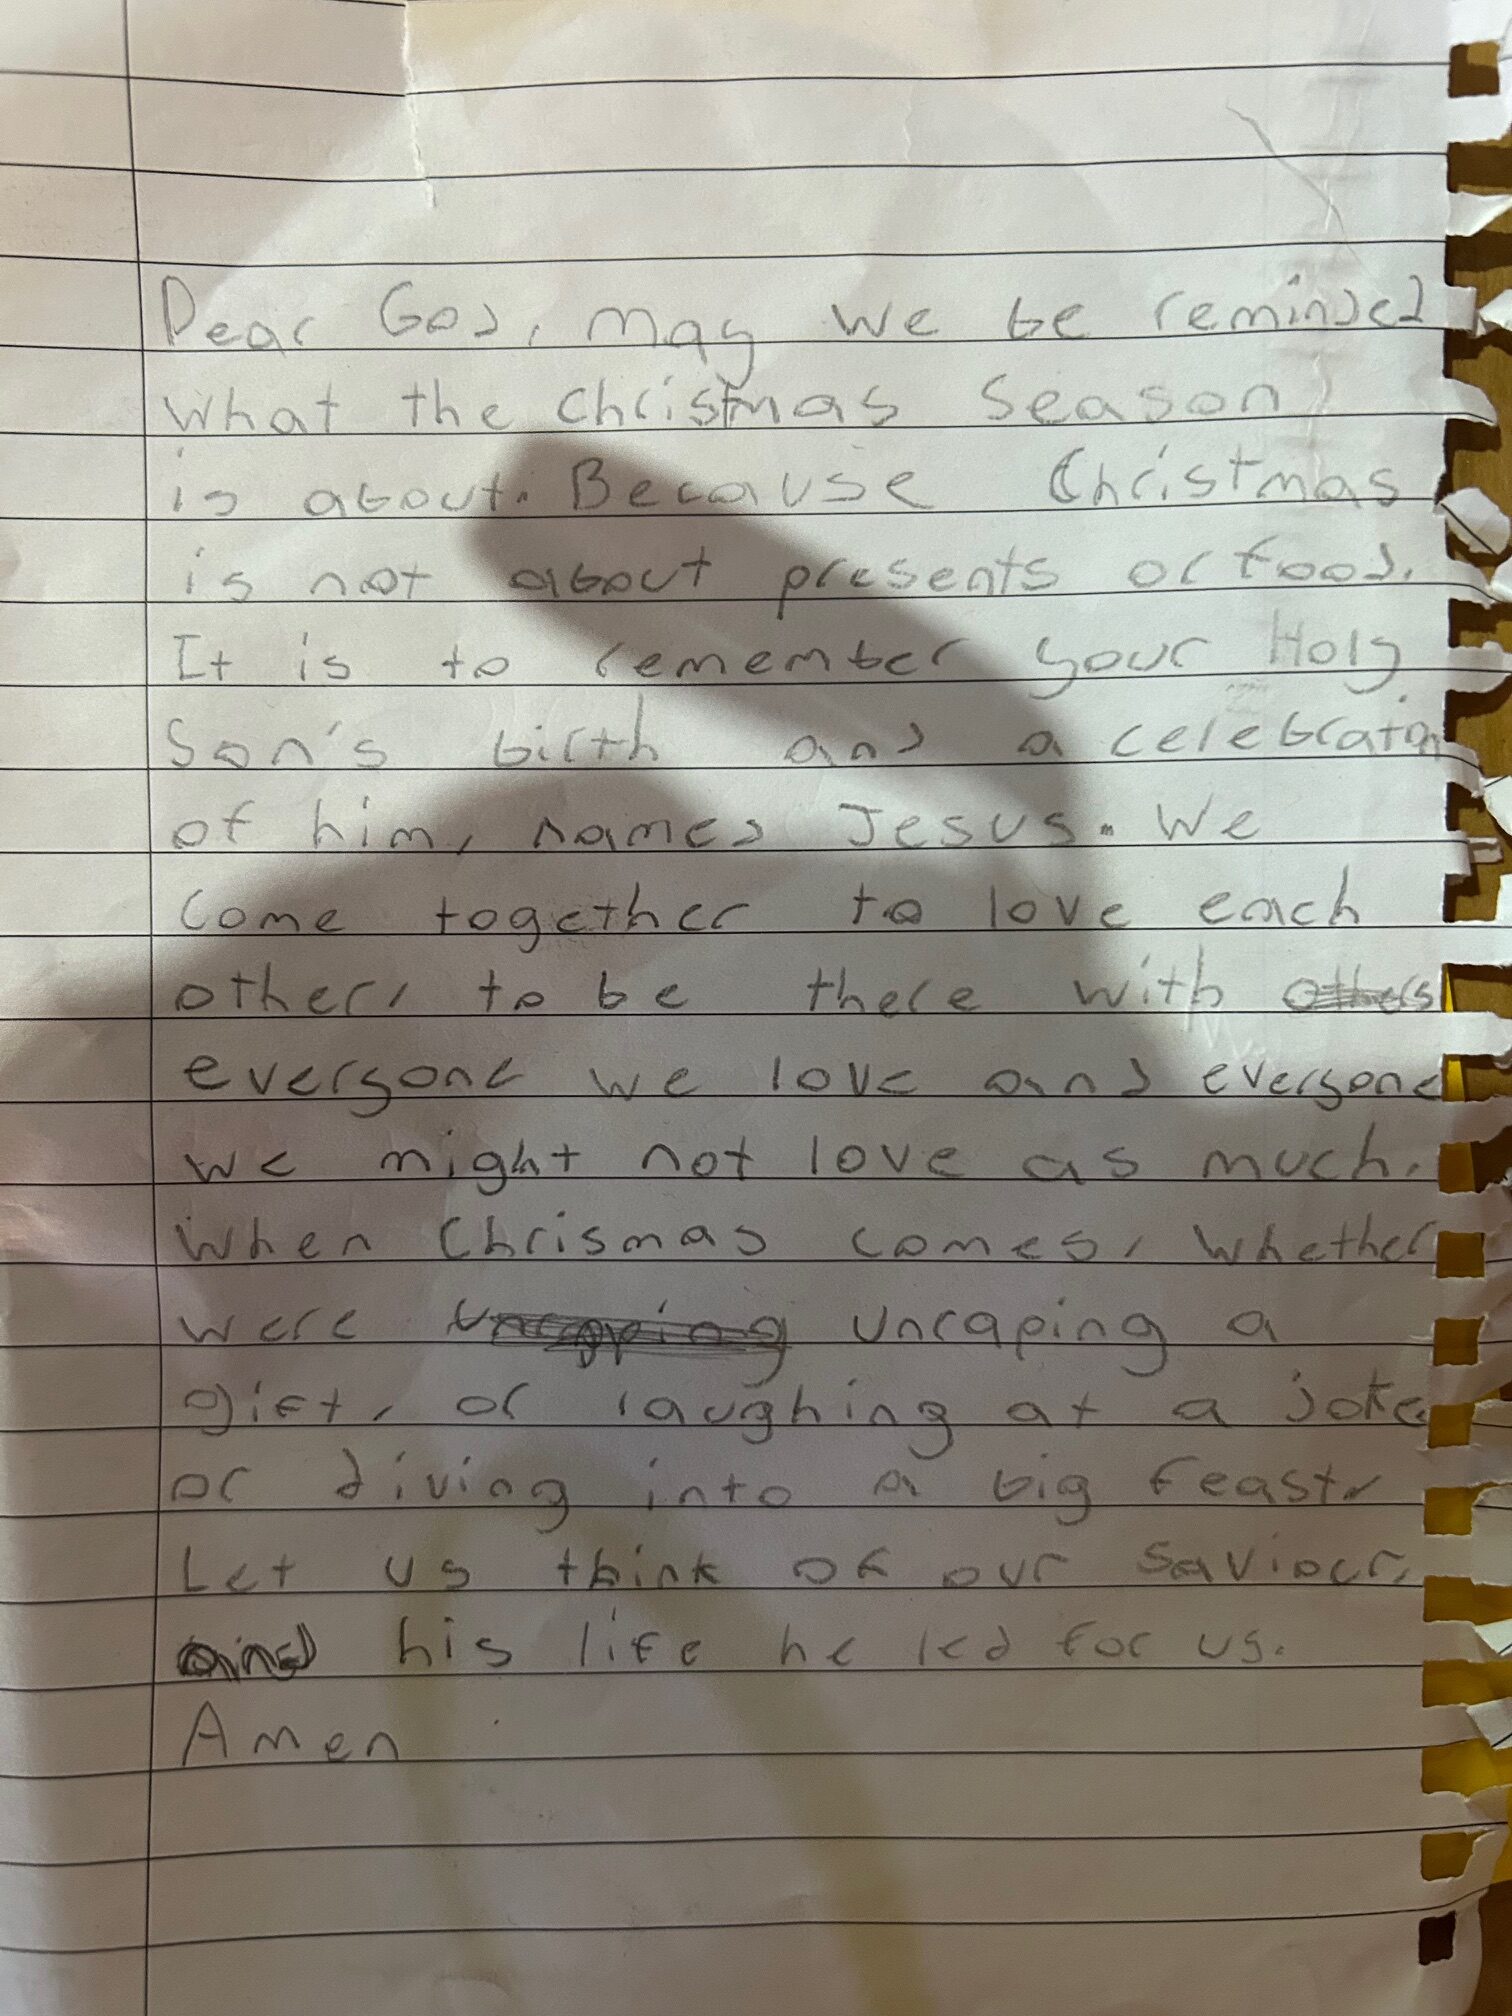 Dear God, may we be reminded
what the christmas season
is about. Because Christmas
is not about presents or food.
It is to remember your Holy
Son's birth and a celebration
of him, named Jesus. We
come together to love each
other, to be there with others
everyone we love and everyone
we might not love as much.
When Chrismas comes, whether
were uncaping a
gift, or laughing at a joke
or diving into a big feast,
Let us think of our saviour,
and his life he led for us.
Amen